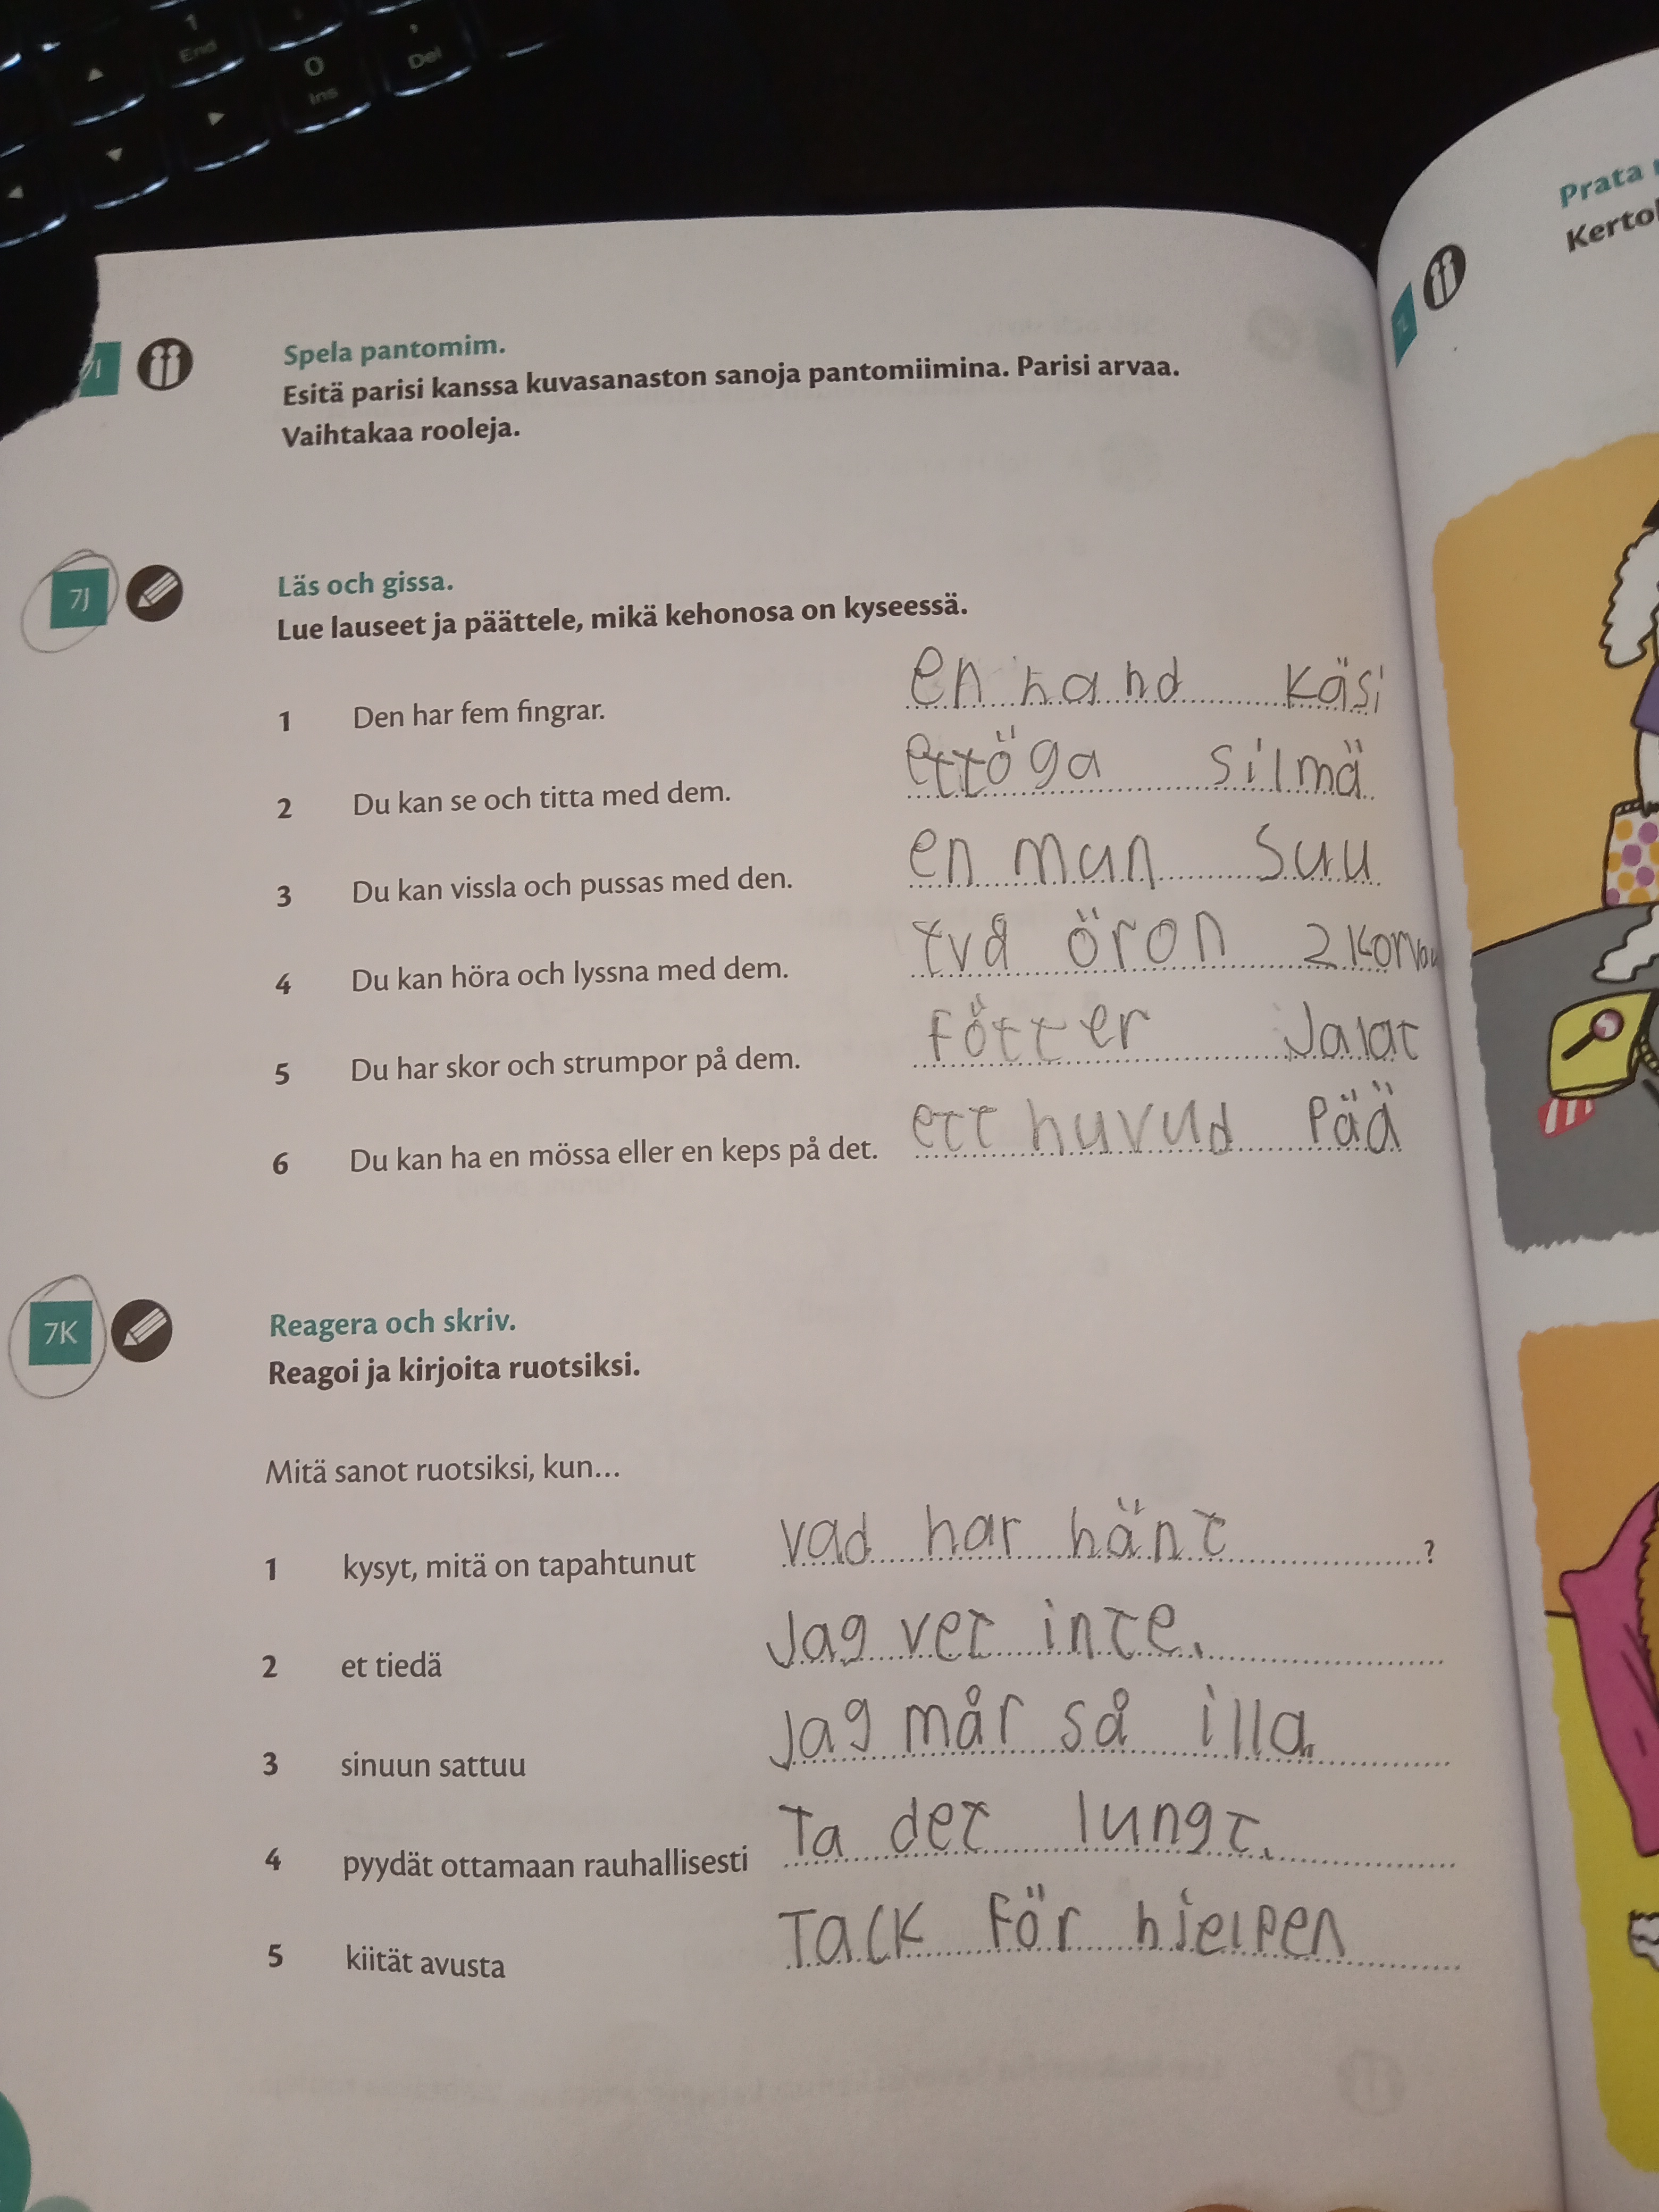 1
End
0
Ins
,
Del
7I
Spela pantomim.
Esitä parisi kanssa kuvasanaston sanoja pantomiimina. Parisi arvaa.
Vaihtakaa rooleja.
7J
Läs och gissa.
Lue lauseet ja päättele, mikä kehonosa on kyseessä.
1 Den har fem fingrar. en hand käsi
2 Du kan se och titta med dem. ett öga silmä
3 Du kan vissla och pussas med den. en mun suu
4 Du kan höra och lyssna med dem. två öron 2 korvau
5 Du har skor och strumpor på dem. fötter Jalat
6 Du kan ha en mössa eller en keps på det. ett huvud Pää
7K
Reagera och skriv.
Reagoi ja kirjoita ruotsiksi.
Mitä sanot ruotsiksi, kun...
1 kysyt, mitä on tapahtunut vad har hänt ?
2 et tiedä Jag vet inte.
3 sinuun sattuu Jag mår så illa.
4 pyydät ottamaan rauhallisesti Ta det lungt.
5 kiität avusta Tack för hjelpen
Prata